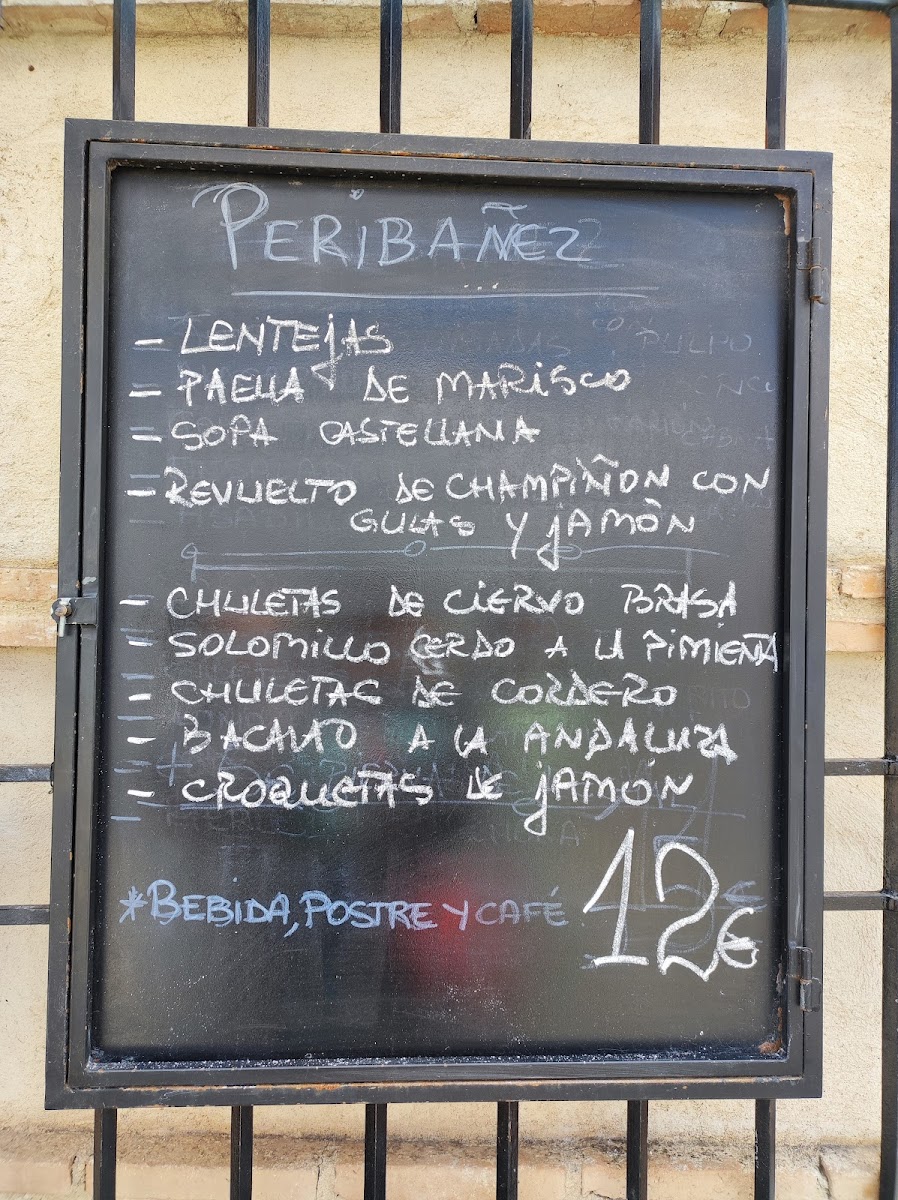 PERIBAÑEZ
- LENTEJAS
- PAELLA DE MARISCO
- SOPA CASTELLANA
- REVUELTO DE CHAMPIÑON CON
GULAS Y JAMÓN
- CHULETAS DE CIERVO BRASA
- SOLOMILLO CERDO A LA PIMIENTA
- CHULETAS DE CORDERO
- BACALAO A LA ANDALUZA
- CROQUETAS DE JAMÓN
*BEBIDA, POSTRE Y CAFÉ 12€